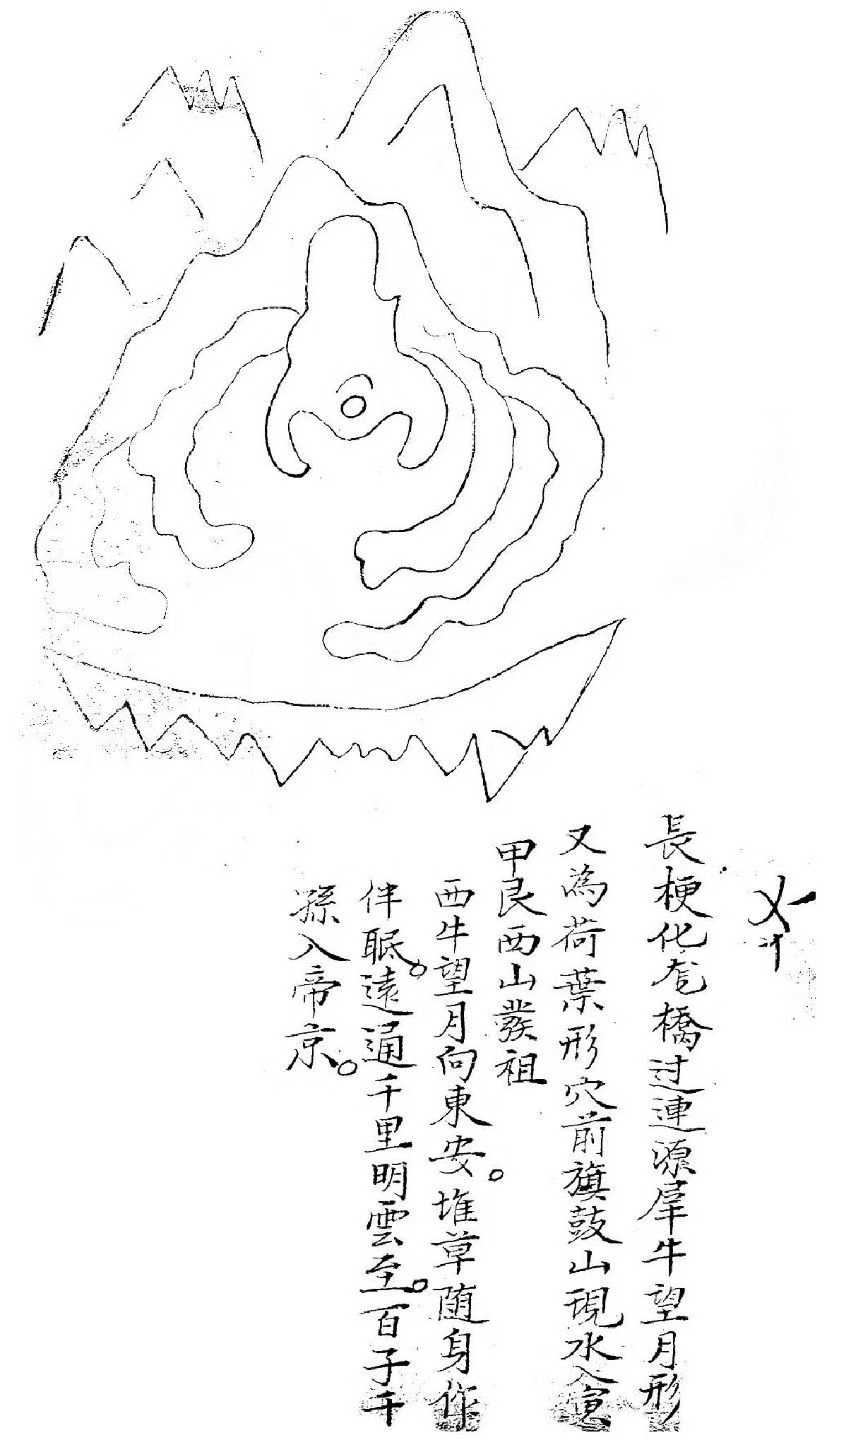 長梗化龙橋过連源犀牛望月形
又為荷葉形穴前旗鼓山現水入
甲艮西山發祖
西牛望月向東安。堆草随身作
伴眠。遠通千里明雲至。百子千
孫入帝京。